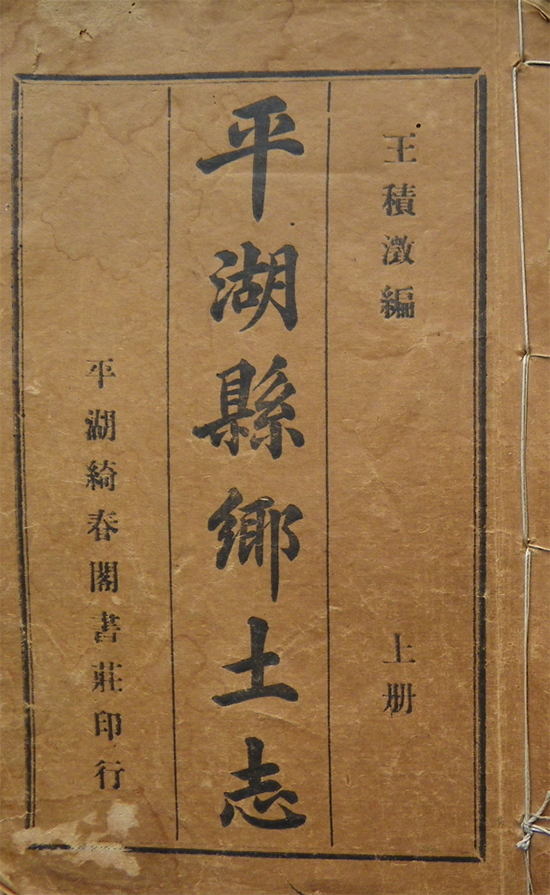 王積澂編
上册
平湖縣鄉土志
平湖綺春閣書莊印行